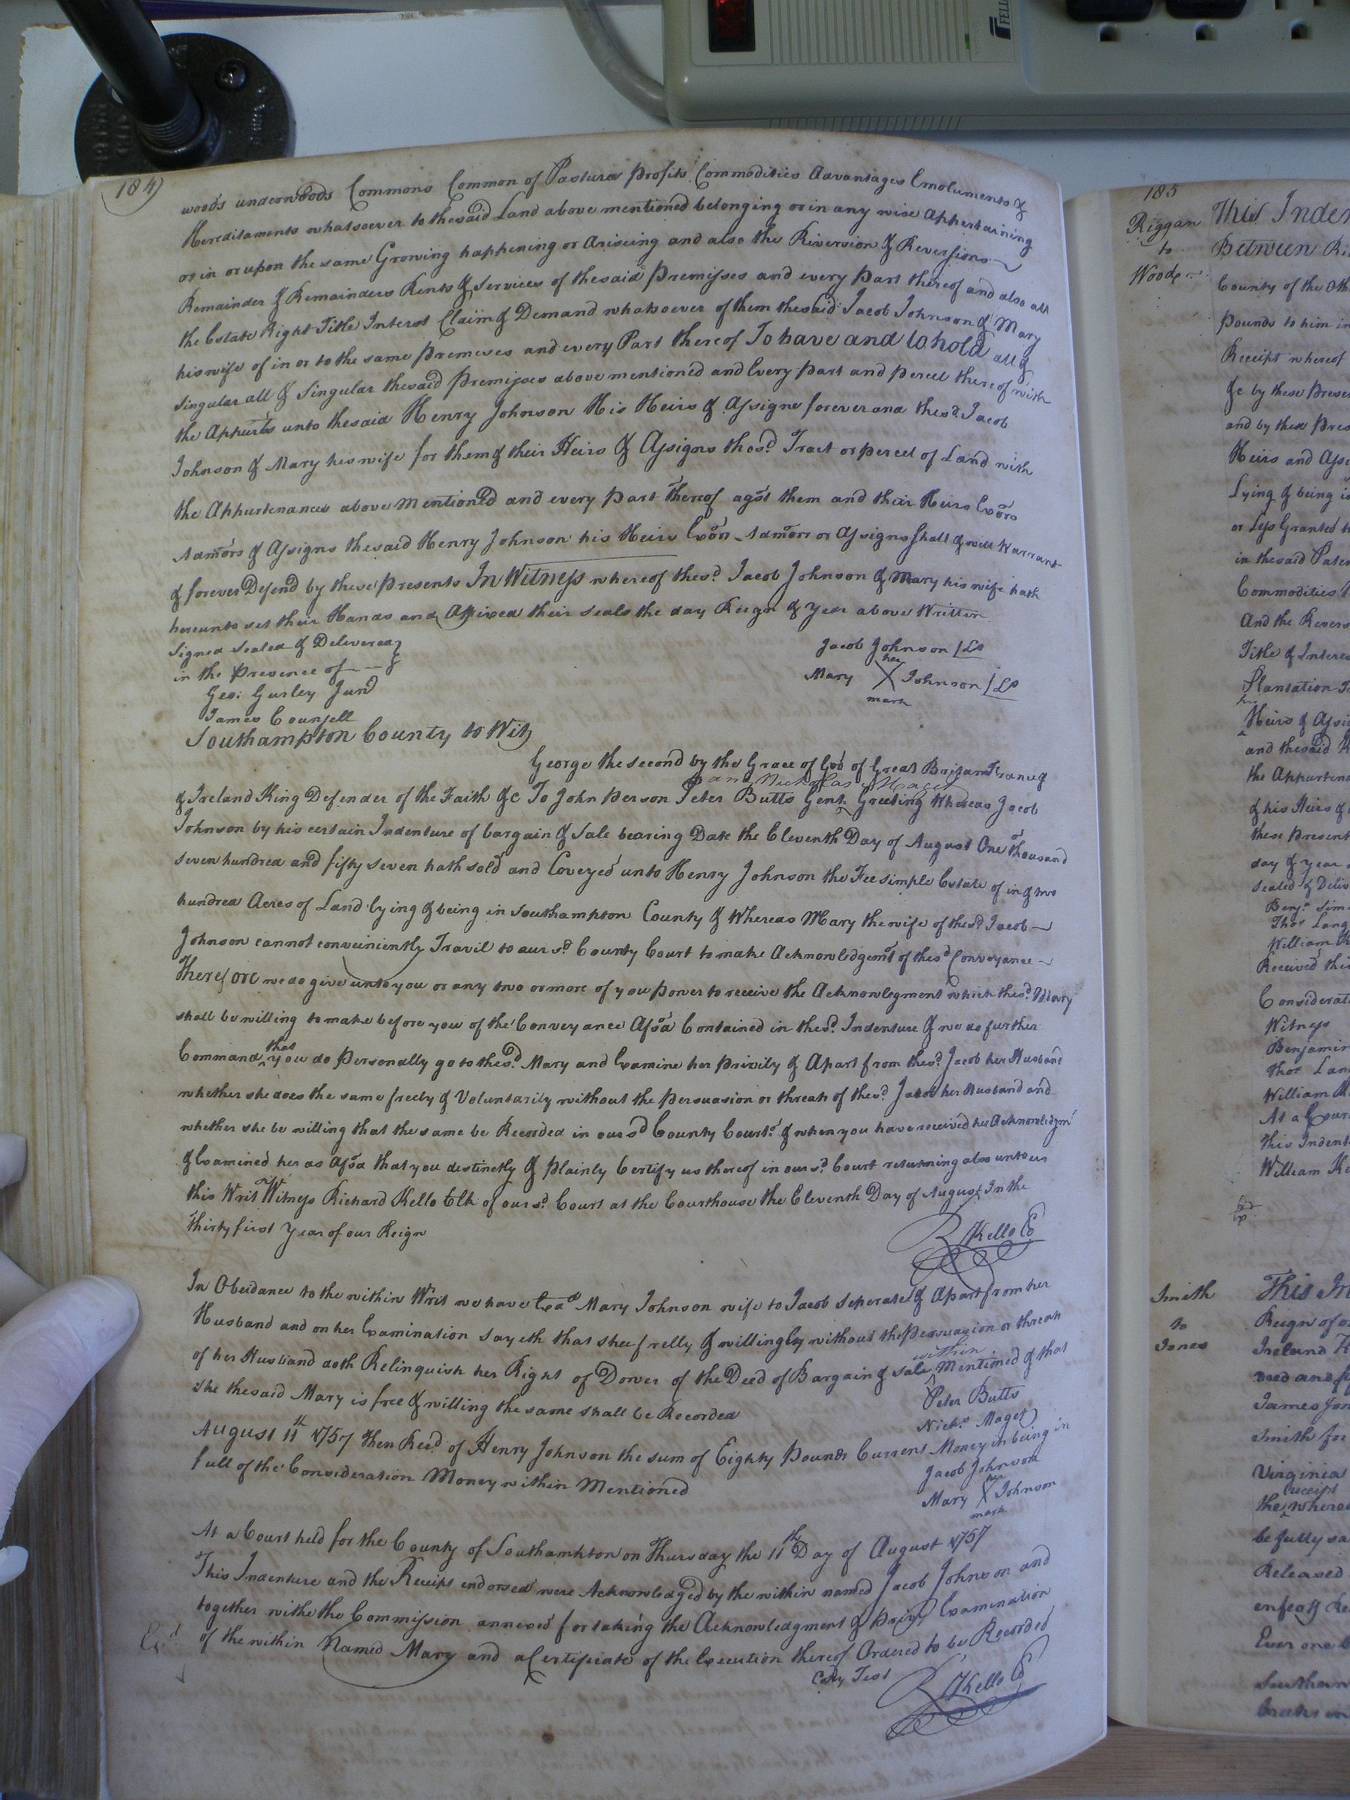 184)
woods underwoods Commons Common of Pastures profits Commodities Advantages Emoluments &
Hereditaments whatsoever to thesaid Land above mentioned belonging or in any wise Appertaining
or in or upon the same Growing happening or Ariseing and also the Riversion & Reversions
Remainder & Remainders Rents & Services of thesaid Premisses and every Part thereof and also all
the Estate Right Title Interest Claim & Demand whatsoever of them thesaid Jacob Johnson & Mary
his wife of in or to the same premeses and every Part thereof To have and to hold all &
Singular all & Singular thesaid Premisses above mentioned and Every part and percel thereof with
the Appurts unto thesaid Henry Johnson His Heirs & Assigns forever and thesd. Jacob
Johnson & Mary his wife for them & their Heirs & Assigns thesd. Tract or percel of Land with
the Appurtenances above Mentioned and every part thereof agst them and their Heirs Exors
Admors & Assigns thesaid Henry Johnson his Heirs Exors Admors or Assigns Shall & will Warrant
& forever Defend by these presents In Witness whereof thesd. Jacob Johnson & Mary his wife hath
hereunto set their Hands and Affixed their seals the day Reign & Year above Written
Signed Sealed & Delivered
in the Presence of
Geo: Gurley Junr
James Counsell
Jacob Johnson (Ls
her
Mary X Johnson (Ls
mark
Southampton County to Wit
George the second by the Grace of God of Great Britain France
and Nicholas Maget
& Ireland King Defender of the Faith &c To John Person Peter Butts Gent. Greeting Whereas Jacob
Johnson by his certain Indenture of bargain & Sale bearing Date the Eleventh Day of August One thousand
seven hundred and fifty seven hath sold and Coveyed unto Henry Johnson the Fee simple Estate of in & two
hundred Acres of Land lying & being in Southampton County & Whereas Mary the wife of thesd. Jacob
Johnson cannot conveiniently Travil to our sd. County Court to make Acknowledgemt of thesd Conveyance
Therefore we do give unto you or any two or more of you power to receive the Acknowlegment which thesd. Mary
shall be willing to make before you of the Conveyance Afsd Contained in thesd. Indenture & we do further
that
Command you do Personally go to thesd. Mary and Examine her privily & Apart from thesd. Jacob her Husband
whether she does the same freely & Voluntarily without the persuasion or threats of thesd. Jacob her Husband and
whether she be willing that the same be Recorded in our sd County Court & when you have received her Acknowledgmt
& Examined her as Afsd that you distinctly & plainly Certify us thereof in our sd. Court returning also unto us
this Writ Witness Richard Kello Clk of our sd. Court at the Courthouse the Eleventh Day of August In the
thirty first Year of our Reign
R Kello C
In Obeidance to the within Writ we have Exad Mary Johnson wife to Jacob seperate & Apart from her
Husband and on her Examination sayeth that shee frelly & willingly without the persuagion or threats
within
of her Husband doth Relinquish her Right of Dower of the Deed of Bargain & sale Mentioned & that
she thesaid Mary is free & willing the same shall be Recorded
Peter Butts
Nichs. Maget
August 11th 1757 then Recd of Henry Johnson the sum of Eighty Pounds Current Money in being in
full of the Consideration Money within Mentioned
Jacob Johnson
her
Mary X Johnson
mark
At a Court held for the County of Southamkton on Thursday the 11th Day of August 1757
This Indenture and the Receipt endorsed were Acknowledged by the within named Jacob Johnson and
together withe the Commission annexed for taking the Acknowledgment & Privy Examination
of the within Named Mary and a Certificate of the Execution thereof Ordered to be Recorded
Copy Test
R Kello C
Exd
185
Riggan
to
Wrode
This Inden
Between
County of the
pounds to him in
Receipt whereof
&c by these Prese
and by these Pres
Heirs and Assi
Lying & being i
or Less Granted
in thesaid Paten
Commodities
And the Revers
Title & Interes
Plantation
Heirs & Assi
and thesaid
the Appurten
of his Heirs &
these present
day & year
sealed & Deliv
Benjn. Sim
Thos Lang
William
Received this
Considerat
Witness
Benjamin
Thos Lan
William
At a Cour
this Indent
William
Smith
to
Jones
This In
Reign of o
Ireland
James Jon
Smith for
Virginia
receipt
the where
be fully sa
Released
enfeoff
Ever one
Southam